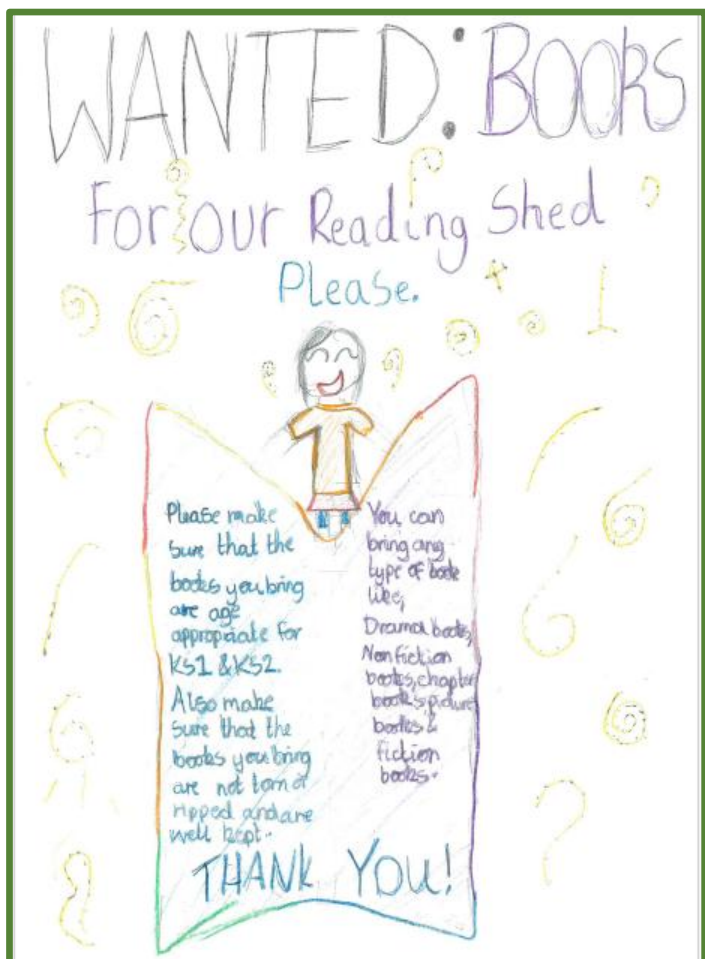 WANTED: BOOKS
For our Reading Shed
Please.
Please make
sure that the
books you bring
are age
appropriate for
KS1 & KS2.
Also make
sure that the
books you bring
are not torn or
ripped and are
well kept.
You can
bring any
type of book
like,
Drama books,
Non fiction
books, chapter
books, picture
books &
fiction
books.
THANK YOU!